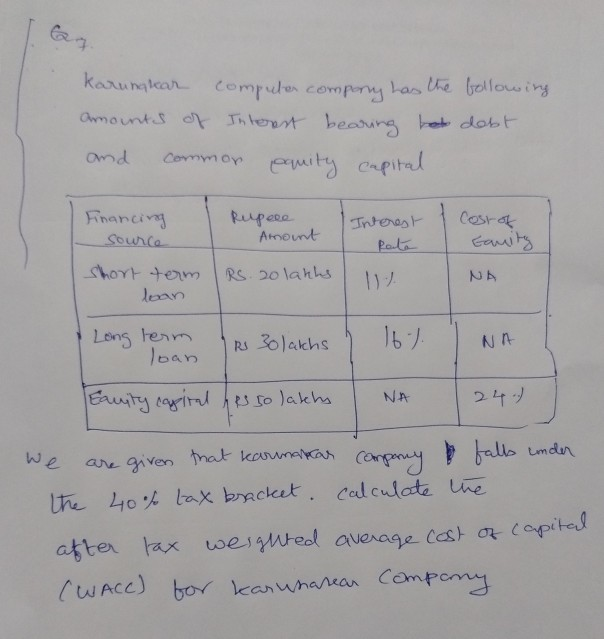 Q7.
Karunakar computer company has the following
amounts of Interest bearing debt
and common equity capital
Financing source Rupee Amount Interest Rate Cost of Equity
Short term loan RS. 20 lakhs 11% NA
Long term loan RS 30 lakhs 16% NA
Equity capital RS 50 lakhs NA 24%
We are given that karunakar company falls under
the 40% tax bracket. calculate the
after tax weighted average cost of capital
(WACC) for karunakar company